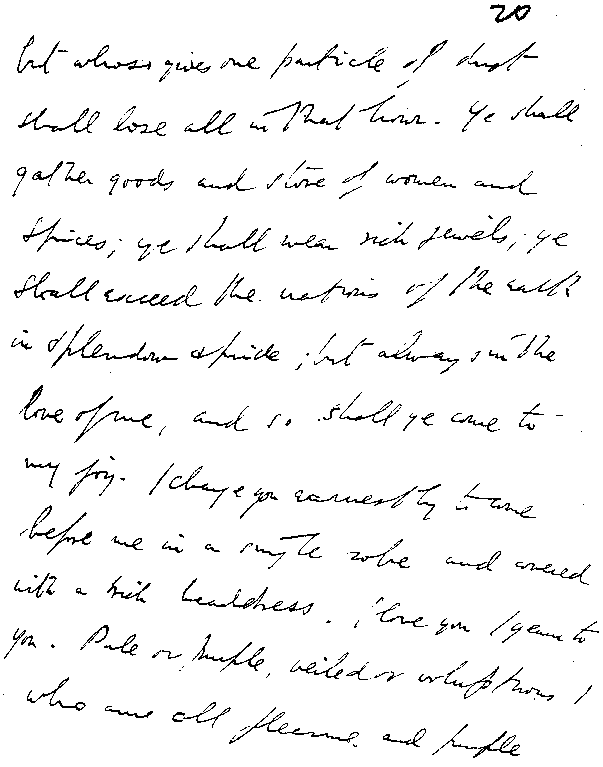 20
but whoso gives one particle of dust
shall lose all in that hour. Ye shall
gather goods and store of women and
spices; ye shall wear rich jewels; ye
shall exceed the nations of the earth
in splendour & pride; but always in the
love of me, and so shall ye come to
my joy. I charge you earnestly to come
before me in a single robe and covered
with a rich headdress. I love you I yearn to
you. Pale or purple, veiled or voluptuous I
who am all pleasure and purple